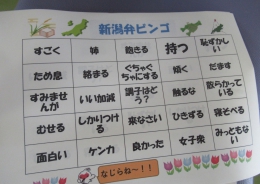 新潟弁ビンゴ
すごく 姉 飽きる 持つ 恥ずかしい
ため息 絡まる ぐちゃぐちゃにする 傾く だます
すみませんが いい加減 調子はどう? 触るな 散らかっている
むせる しかりつける 来なさい ひきずる 寝そべる
面白い ケンカ 良かった 女子衆 みっともない
なじらね~!!